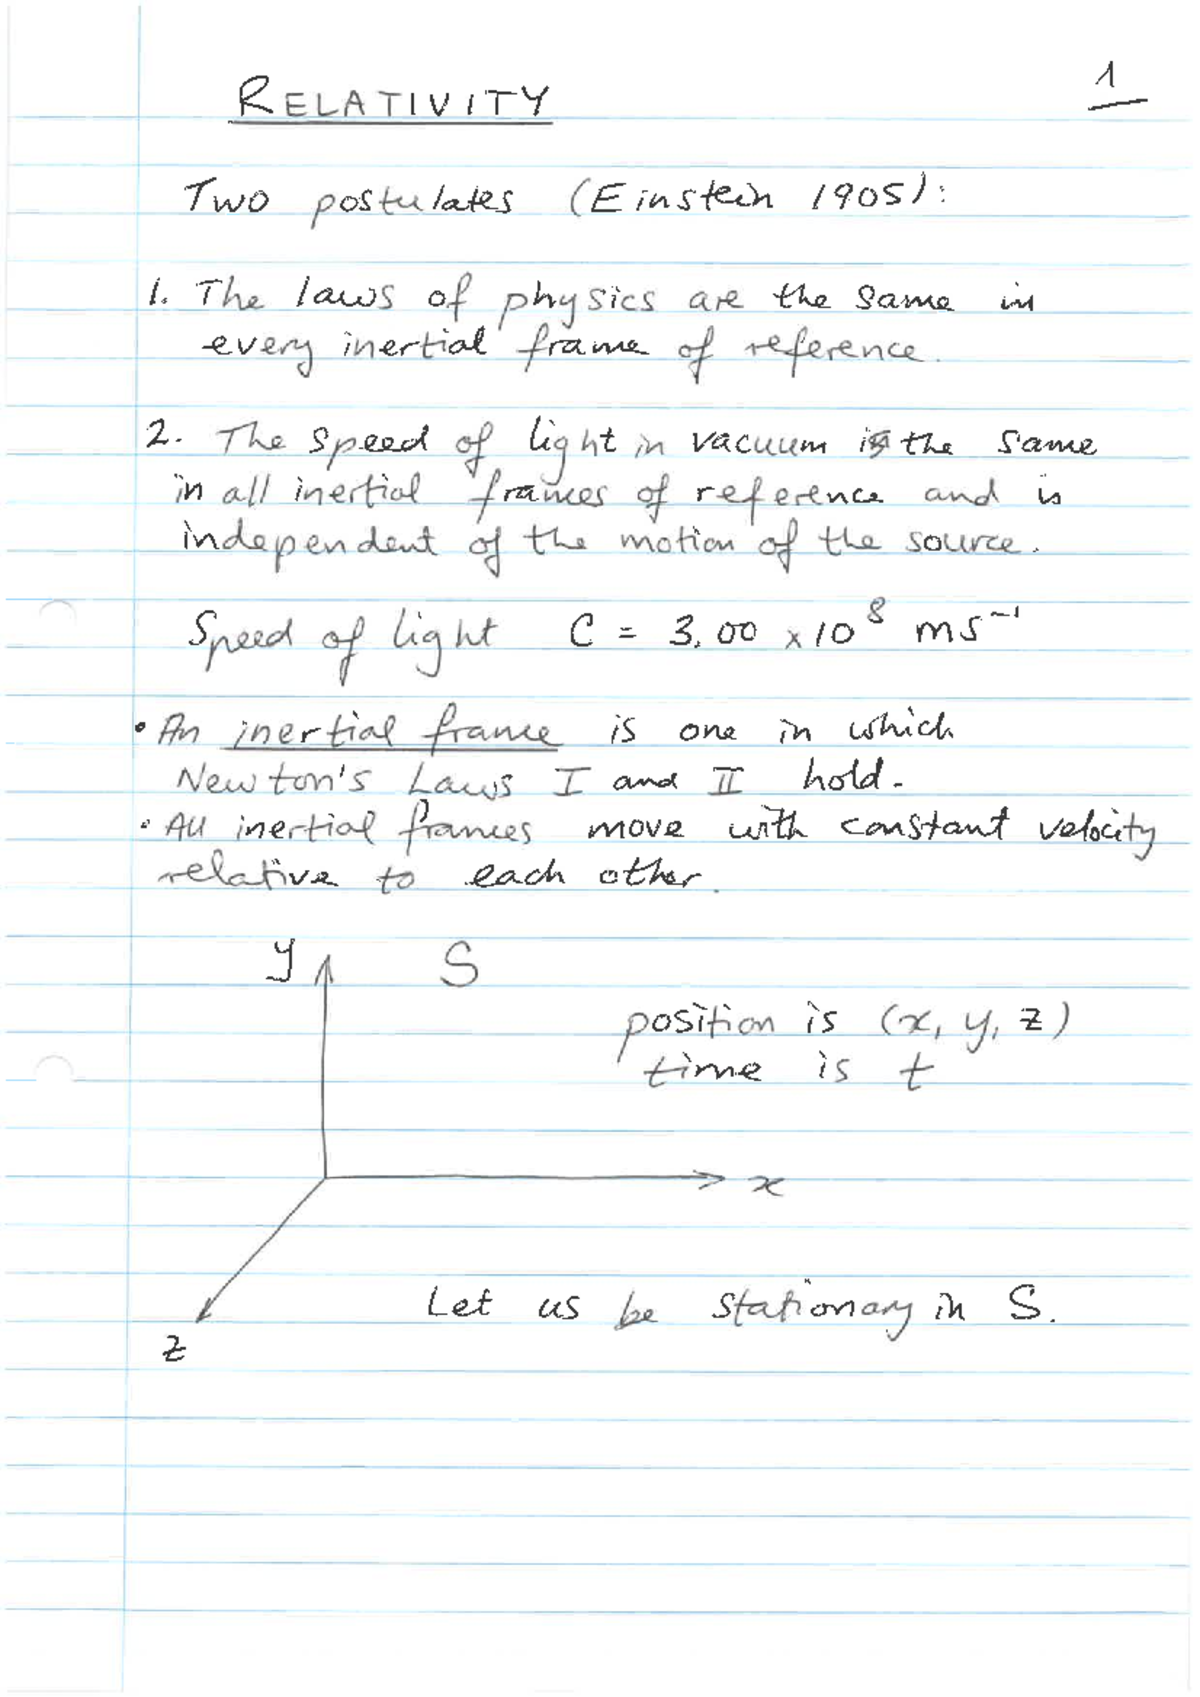 RELATIVITY
1
Two postulates (Einstein 1905):
1. The laws of physics are the same in
every inertial frame of reference.
2. The speed of light in vacuum is the same
in all inertial frames of reference and is
independent of the motion of the source.
Speed of light C = 3.00 × 10⁸ ms⁻¹
• An inertial frame is one in which
Newton's Laws I and II hold.
• All inertial frames move with constant velocity
relative to each other.
y S
position is (x, y, z)
time is t
x
Let us be stationary in S.
z